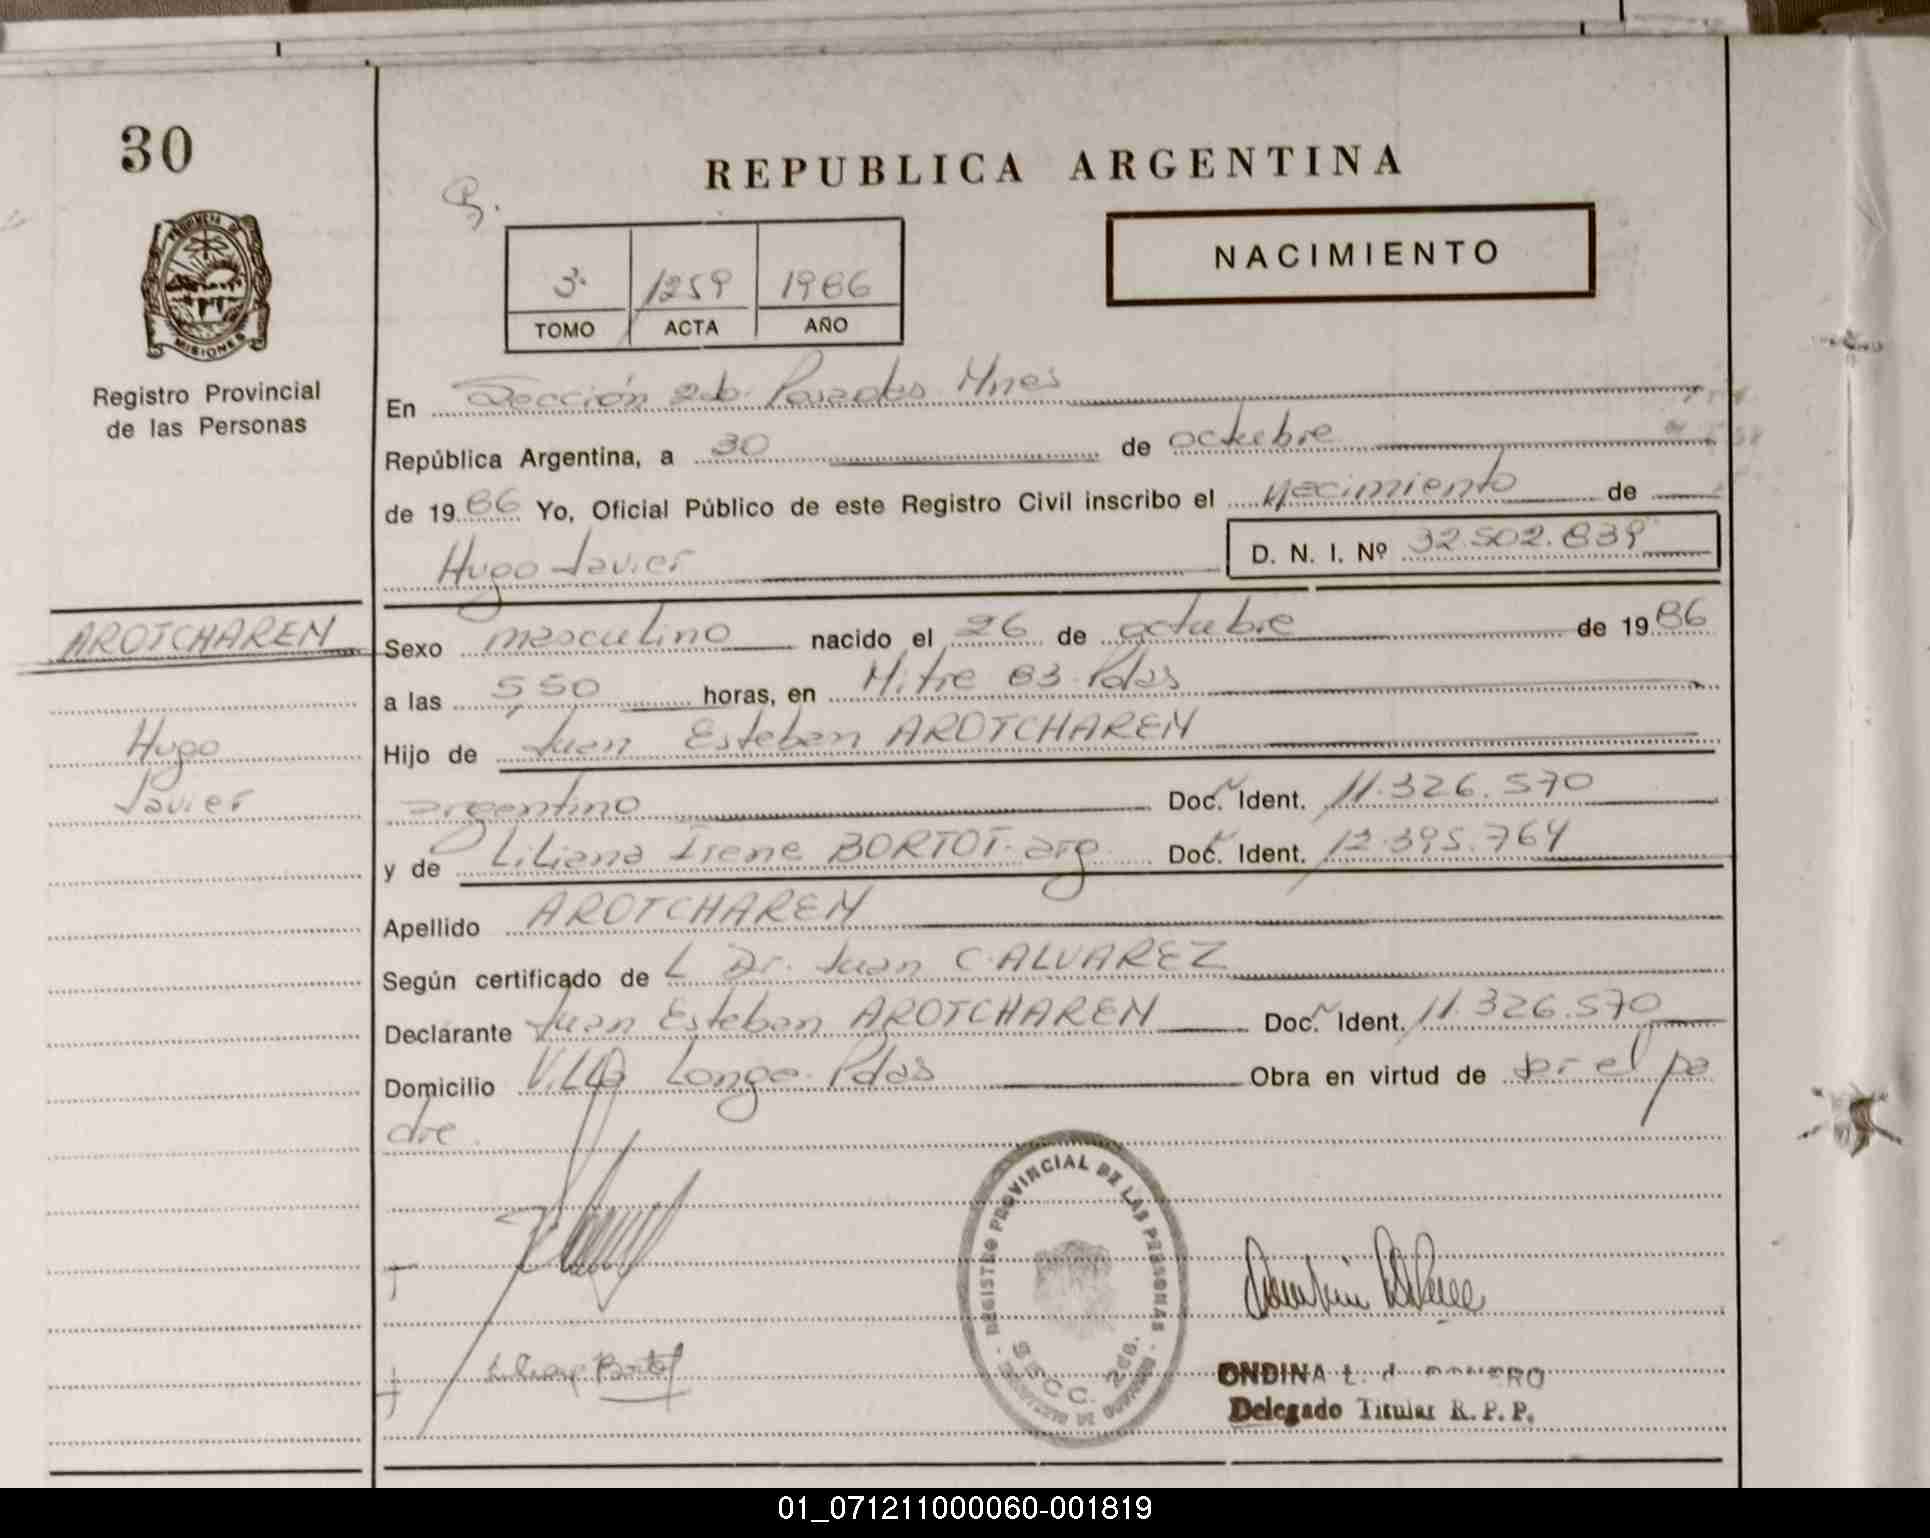 30
REPUBLICA ARGENTINA
PROVINCIA D
MISIONES
Registro Provincial
de las Personas
NACIMIENTO
3º 1259 1986
TOMO ACTA AÑO
En Sección 2da. Posadas Mnes
República Argentina, a 30 de octubre
de 1986 Yo, Oficial Público de este Registro Civil inscribo el Nacimiento de
Hugo Javier D. N. I. Nº 32.502.839
AROTCHAREN
Hugo
Javier
Sexo masculino nacido el 26 de octubre de 1986
a las 5,50 horas, en Mitre 83 Pdas
Hijo de Juan Esteban AROTCHAREN
argentino Doc. Ident. 11.326.570
y de Liliana Irene BORTOT. arg. Doc. Ident. 12.395.764
Apellido AROTCHAREN
Según certificado de L Dr. Juan C. ALVAREZ
Declarante Juan Esteban AROTCHAREN Doc. Ident. 11.326.570
Domicilio Villa Longa Pdas Obra en virtud de ser el pa
dre.
REGISTRO PROVINCIAL DE LAS PERSONAS
SECC. 2da.
Bortot
ONDINA
Delegado Titular R. P. P.
01_071211000060-001819